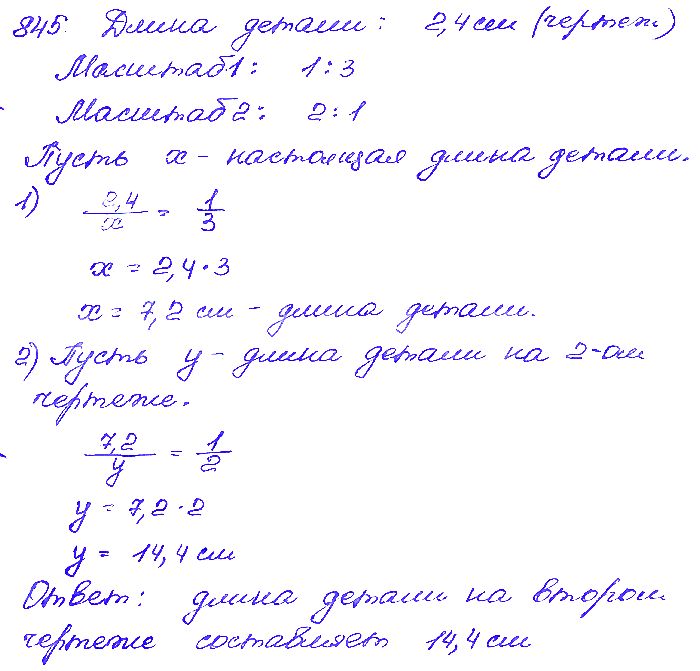 845. Длина детали: 2,4 см (чертеж)
Масштаб 1: 1:3
Масштаб 2: 2:1
Пусть x - настоящая длина детали.
1) 2,4/x = 1/3
x = 2,4 · 3
x = 7,2 см - длина детали.
2) Пусть y - длина детали на 2-ом
чертеже.
7,2/y = 1/2
y = 7,2 · 2
y = 14,4 см
Ответ: длина детали на втором
чертеже составляет 14,4 см